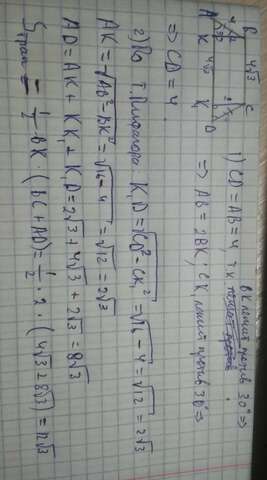 B
4
4√3
A
30°
K
4√3
2
K₁
C
D
1) CD = AB = 4, т.к
BK лежит против 30° ⇒
⇒ AB = 2BK; CK₁ лежит против 30° ⇒
⇒ CD = 4.
2) По т. Пифагора: K₁D = √CD² − CK₁² = √16 − 4 = √12 = 2√3
AK = √AB² − BK² = √16 − 4 = √12 = 2√3
AD = AK + KK₁ + K₁D = 2√3 + 4√3 + 2√3 = 8√3
Sтрап = 1/2 BK · (BC + AD) = 1/2 · 2 · (4√3 + 8√3) = 12√3